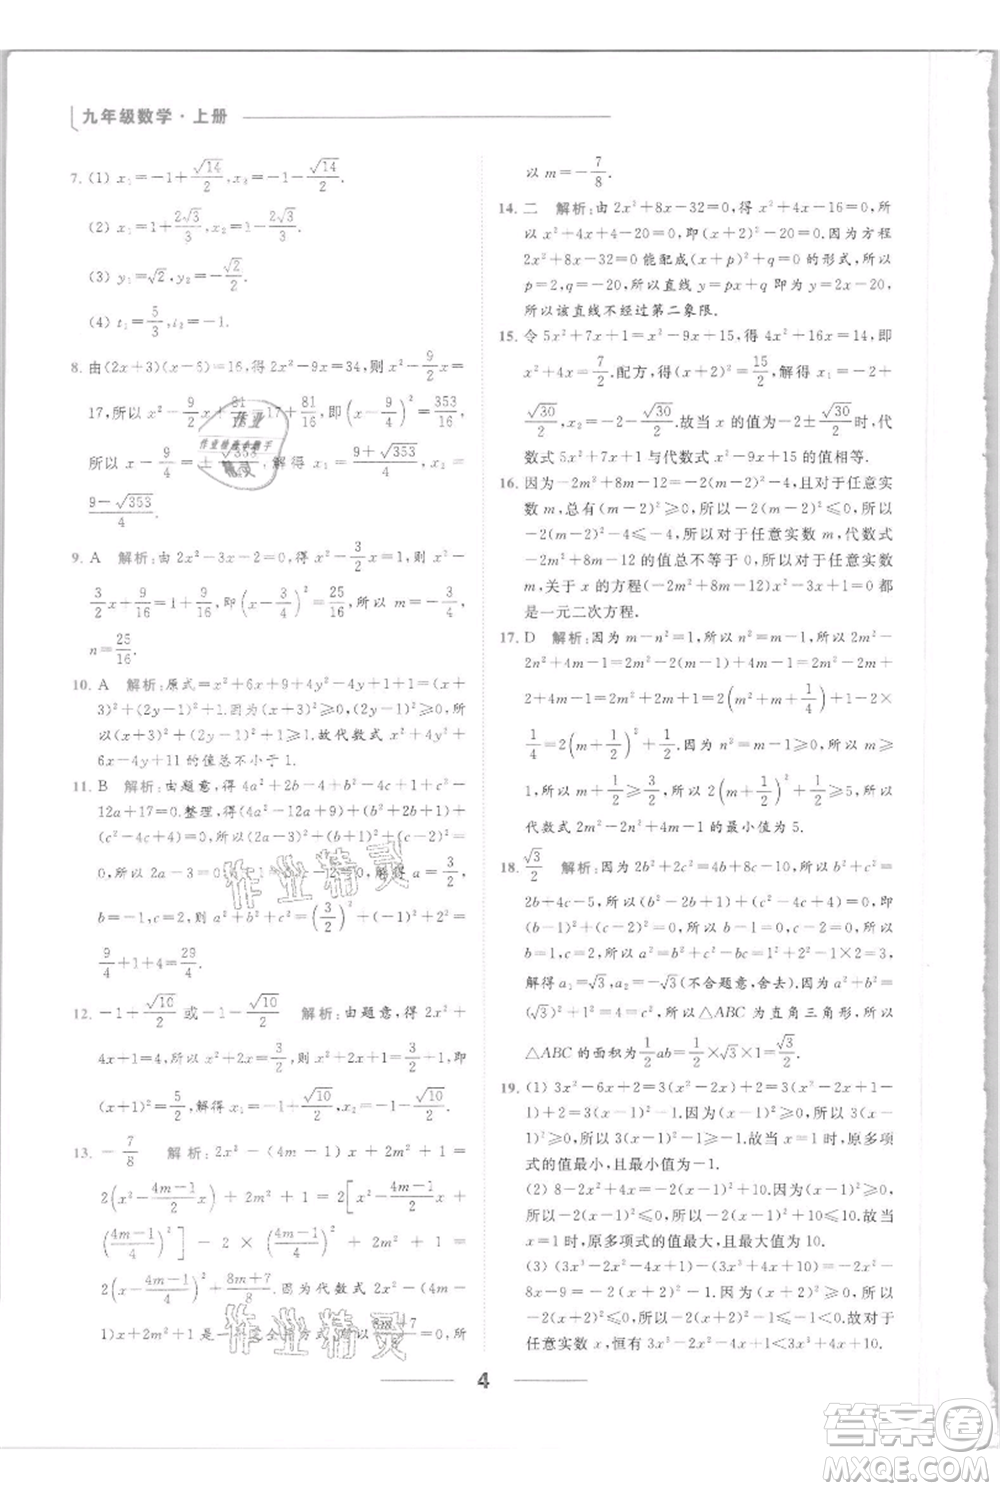 九年级数学·上册
7. (1) x₁=-1+√14/2, x₂=-1-√14/2.
(2) x₁=1+2√3/3, x₂=1-2√3/3.
(3) y₁=√2, y₂=-√2/2.
(4) t₁=5/3, t₂=-1.
8. 由(2x+3)(x-6)=16,得2x²-9x=34,则x²-9/2x=
17,所以x²-9/2x+81/16=17+81/16,即(x-9/4)²=353/16,
所以x-9/4=±√353/4,解得x₁=(9+√353)/4,
(9-√353)/4.
9. A 解析:由2x²-3x-2=0,得x²-3/2x=1,则x²-
3/2x+9/16=1+9/16,即(x-3/4)²=25/16,所以m=-3/4,
n=25/16.
10. A 解析:原式=x²+6x+9+4y²-4y+1+1=(x+
3)²+(2y-1)²+1.因为(x+3)²≥0,(2y-1)²≥0,所
以(x+3)²+(2y-1)²+1≥1.故代数式x²+4y²+
6x-4y+11的值总不小于1.
11. B 解析:由题意,得4a²+2b-4+b²-4c-1+c²-
12a+17=0.整理,得(4a²-12a+9)+(b²+2b+1)+
(c²-4c+4)=0,所以(2a-3)²+(b+1)²+(c-2)²=
b=-1,c=2,则a²+b²+c²=(3/2)²+
9/4+1+1=29/4.
12. -1+√10/2或-1-√10/2 解析:由题意,得2x²+
4x+1=4,所以x²+2x+1=3/2+1,即
(x+1)²=5/2,解得x₁=-1+√10/2,x₂=-1-√10/2.
13. -7/8 解析:2x²-(4m-1)x+2m²+1=
2(x²-(4m-1)/2x)+2m²+1=2[x²-(4m-1)/2x+
((4m-1)/4)²]-2×((4m-1)/4)²+2m²+1=
2(x-(4m-1)/4)²+(8m+7)/8.因为代数式2x²-(4m-
1)x+2m²+1是一个完全平方式,所以(8m+7)/8=0,所
以m=-7/8.
14. 二 解析:由2x²+8x-32=0,得x²+4x-16=0,所
以x²+4x+4-20=0,即(x+2)²-20=0.因为方程
2x²+8x-32=0能配成(x+p)²+q=0的形式,所以
p=2,q=-20,所以直线y=px+q即为y=2x-20,
所以该直线不经过第二象限.
15. 令5x²+7x+1=x²-9x+15,得4x²+16x=14,即
x²+4x=7/2.配方,得(x+2)²=15/2,解得x₁=-2+
√30/2,x₂=-2-√30/2.故当x的值为-2±√30/2时,代
数式5x²+7x+1与代数式x²-9x+15的值相等.
16. 因为-2m²+8m-12=-2(m-2)²-4,且对于任意实
数m,都有(m-2)²≥0,所以-2(m-2)²≤0,所以
-2(m-2)²-4≤-4,所以对于任意实数m,代数式
-2m²+8m-12的值总不等于0,所以对于任意实数
m,关于x的方程(-2m²+8m-12)x²-3x+1=0都
是一元二次方程.
17. D 解析:因为m-n²=1,所以n²=m-1,所以2m²-
2n²+4m-1=2m²-2(m-1)+4m-1=2m²-2m+
2+4m-1=2m²+2m+1=2(m²+m+1/4)+1-2×
1/4=2(m+1/2)²+1/2.因为n²=m-1≥0,所以m≥
1,所以m+1/2≥3/2,所以2(m+1/2)²+1/2≥5,所以
代数式2m²-2n²+4m-1的最小值为5.
18. √3/2 解析:因为2b²+2c²=4b+8c-10,所以b²+c²=
2b+4c-5,所以b²-2b+1+c²-4c+4=0,即
(b-1)²+(c-2)²=0,所以b-1=0,c-2=0,所以
b=1,c=2,所以a²=c²+b²-bc=2²+1²-1×2=3,
解得a₁=√3,a₂=-√3(不合题意,舍去),所以a²+b²=
(√3)²+1²=4=c²,所以△ABC为直角三角形,所以
△ABC的面积为1/2ab=1/2×√3×1=√3/2.
19. (1) 3x²-6x+2=3(x²-2x)+2=3(x²-2x+1-
1)+2=3(x-1)²-1.因为(x-1)²≥0,所以3(x-
1)²≥0,所以3(x-1)²-1≥-1.故当x=1时,原多项
式的值最小,且最小值为-1.
(2) 8-2x²+4x=-2(x-1)²+10.因为(x-1)²≥0,
所以-2(x-1)²≤0,所以-2(x-1)²+10≤10.故当
x=1时,原多项式的值最大,且最大值为10.
任意实数x,恒有3x³-2x²-4x+1≥3x³+4x-8.
4
作业精灵
答案圈
MXQE.COM